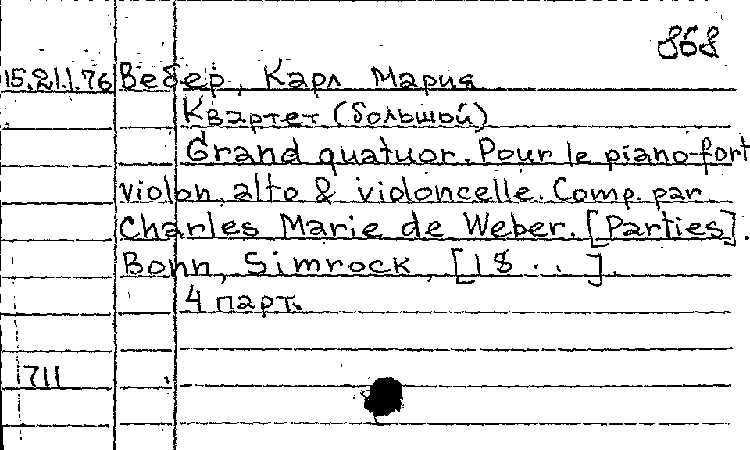 868
15.21.1.76 Вебер, Карл Мария
Квартет (большой)
Grand quatuor. Pour le piano-fort
violon, alto & violoncelle. Comp. par
Charles Marie de Weber. [Parties].
Bonn, Simrock, [18 . . ].
4 парт.
711